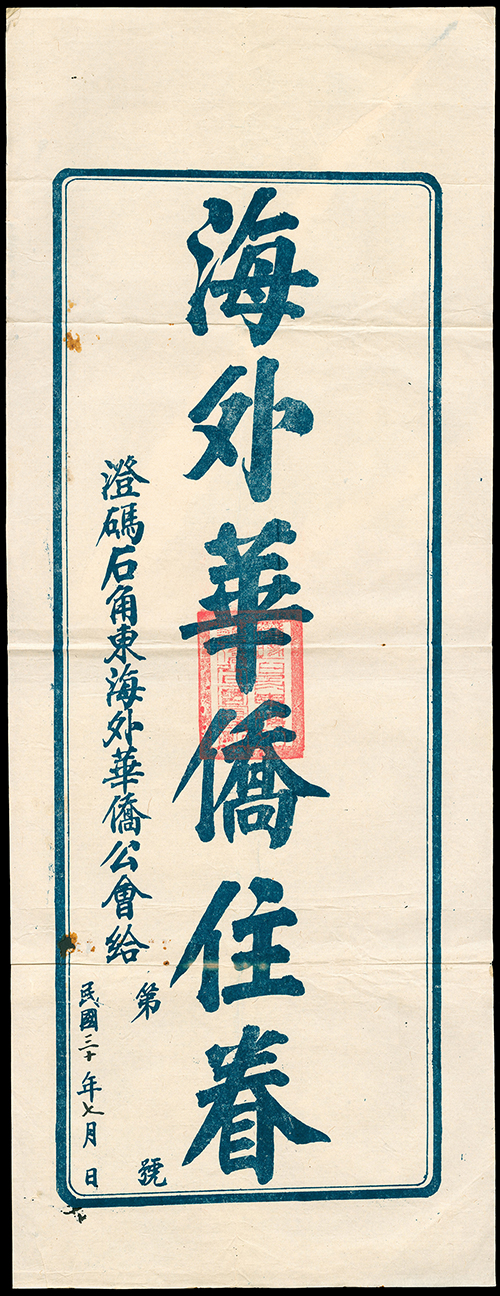 海外華僑住眷
第 號
澄碼石角東海外華僑公會給
民國三十年七月 日